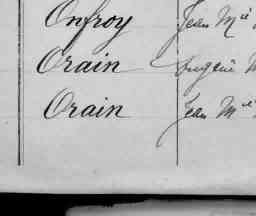 Onfroy Jean Mie
Orain Eugène M
Orain Jean Mie